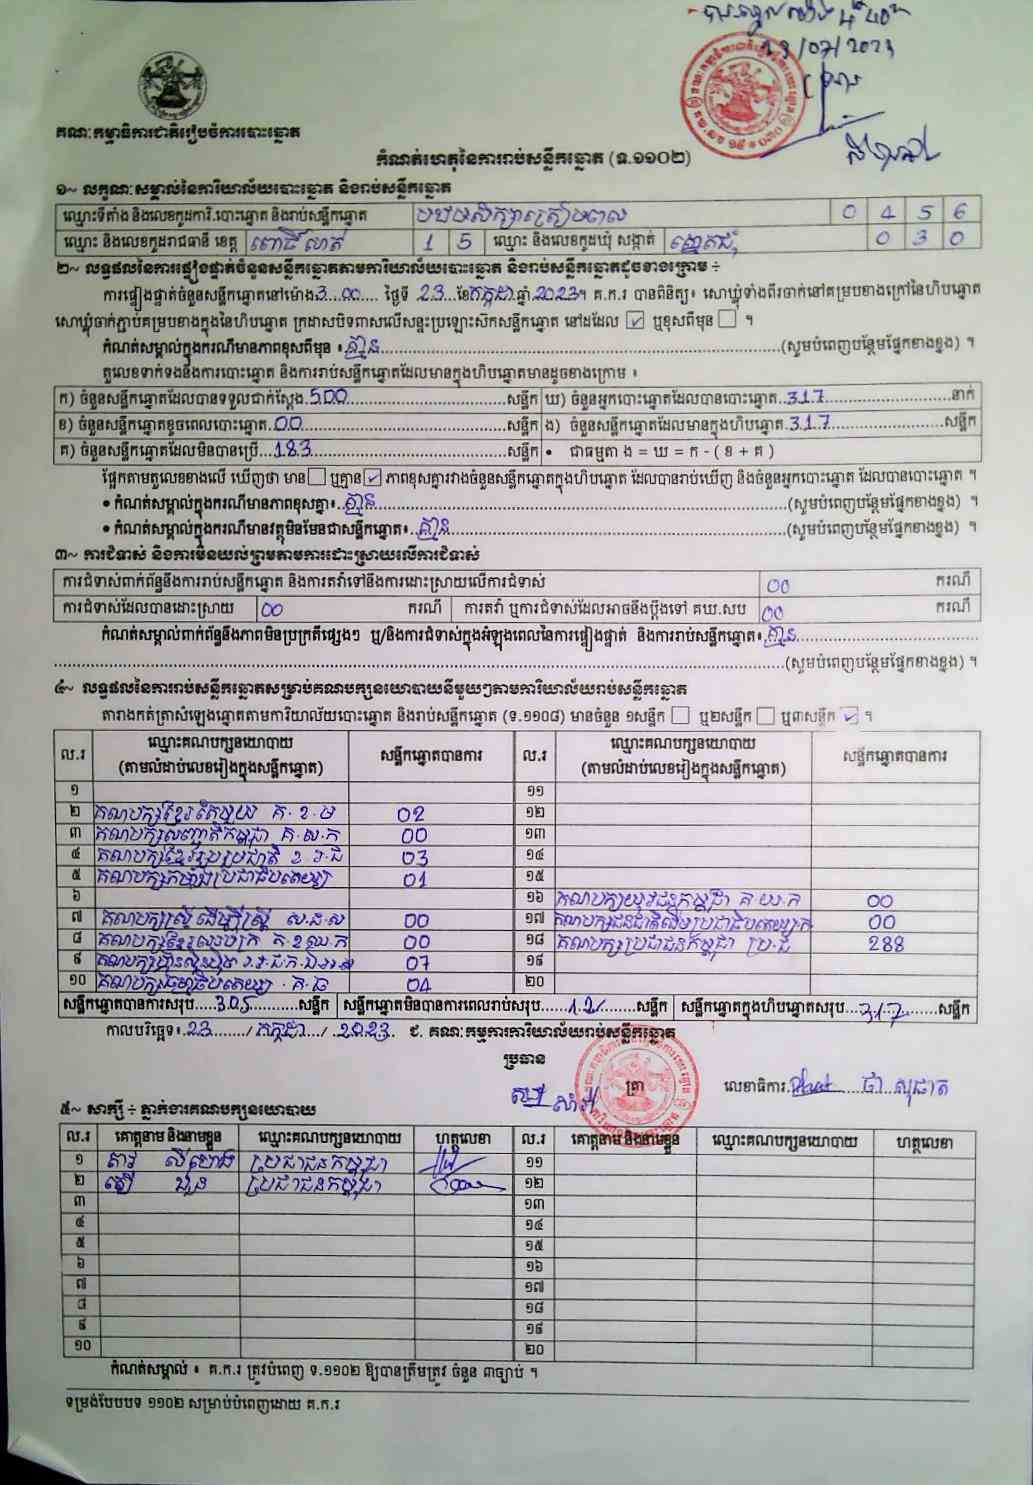 23/07/2023
គណៈកម្មាធិការជាតិរៀបចំការបោះឆ្នោត
កំណត់ហេតុនៃការរាប់សន្លឹកឆ្នោត (ទ.១១០២)
១~ លក្ខណៈសម្គាល់នៃការិយាល័យបោះឆ្នោត និងរាប់សន្លឹកឆ្នោត
ឈ្មោះទីតាំង និងលេខកូដការិ.បោះឆ្នោត និងរាប់សន្លឹកឆ្នោត បឋមសិក្សាត្រៀមពល 0 4 5 6
ឈ្មោះ និងលេខកូដរាជធានី ខេត្ត ពោធិ៍សាត់ 1 5 ឈ្មោះ និងលេខកូដឃុំ សង្កាត់ 0 3 0
២~ លទ្ធផលនៃការផ្ទៀងផ្ទាត់ចំនួនសន្លឹកឆ្នោតតាមការិយាល័យបោះឆ្នោត និងរាប់សន្លឹកឆ្នោតដូចខាងក្រោម ÷
ការផ្ទៀងផ្ទាត់ចំនួនសន្លឹកឆ្នោតនៅម៉ោង 3.00 ថ្ងៃទី 23 ខែ កក្កដា ឆ្នាំ 2023។ គ.ក.រ បានពិនិត្យ៖ សោឃ្លុំទាំងពីរចាក់នៅគម្របខាងក្រៅនៃហិបឆ្នោត
សោឃ្លុំចាក់ភ្ជាប់គម្របខាងក្នុងនៃហិបឆ្នោត ក្រដាសបិទពាសលើសន្ទះប្រឡោះស៊កសន្លឹកឆ្នោត នៅដដែល ☑ ឬខុសពីមុន ☐ ។
កំណត់សម្គាល់ក្នុងករណីមានភាពខុសពីមុន ៖ គ្មាន (សូមបំពេញបន្ថែមផ្នែកខាងខ្នង) ។
តួលេខទាក់ទងនឹងការបោះឆ្នោត និងការរាប់សន្លឹកឆ្នោតដែលមានក្នុងហិបឆ្នោតមានដូចខាងក្រោម ៖
ក) ចំនួនសន្លឹកឆ្នោតដែលបានទទួលជាក់ស្ដែង 500 សន្លឹក ឃ) ចំនួនអ្នកបោះឆ្នោតដែលបានបោះឆ្នោត 317 នាក់
ខ) ចំនួនសន្លឹកឆ្នោតខូចពេលបោះឆ្នោត 00 សន្លឹក ង) ចំនួនសន្លឹកឆ្នោតដែលមានក្នុងហិបឆ្នោត 317 សន្លឹក
គ) ចំនួនសន្លឹកឆ្នោតដែលមិនបានប្រើ 183 សន្លឹក • ជាធម្មតា ង = ឃ = ក - ( ខ + គ )
ផ្អែកតាមតួលេខខាងលើ ឃើញថា មាន ☐ ឬគ្មាន ☑ ភាពខុសគ្នារវាងចំនួនសន្លឹកឆ្នោតក្នុងហិបឆ្នោត ដែលបានរាប់ឃើញ និងចំនួនអ្នកបោះឆ្នោត ដែលបានបោះឆ្នោត ។
• កំណត់សម្គាល់ក្នុងករណីមានភាពខុសគ្នា៖ គ្មាន (សូមបំពេញបន្ថែមផ្នែកខាងខ្នង) ។
• កំណត់សម្គាល់ក្នុងករណីមានវត្ថុមិនមែនជាសន្លឹកឆ្នោត៖ គ្មាន (សូមបំពេញបន្ថែមផ្នែកខាងខ្នង) ។
៣~ ការជំទាស់ និងការមិនយល់ព្រមតាមការដោះស្រាយលើការជំទាស់
ការជំទាស់ពាក់ព័ន្ធនឹងការរាប់សន្លឹកឆ្នោត និងការតវ៉ាទៅនឹងការដោះស្រាយលើការជំទាស់ 00 ករណី
ការជំទាស់ដែលបានដោះស្រាយ 00 ករណី ការតវ៉ា ឬការជំទាស់ដែលអាចនឹងប្ដឹងទៅ គឃ.សប 00 ករណី
កំណត់សម្គាល់ពាក់ព័ន្ធនឹងភាពមិនប្រក្រតីផ្សេងៗ ឬ/និងការជំទាស់ក្នុងអំឡុងពេលនៃការផ្ទៀងផ្ទាត់ និងការរាប់សន្លឹកឆ្នោត៖ គ្មាន
(សូមបំពេញបន្ថែមផ្នែកខាងខ្នង) ។
៤~ លទ្ធផលនៃការរាប់សន្លឹកឆ្នោតសម្រាប់គណបក្សនយោបាយនីមួយៗតាមការិយាល័យរាប់សន្លឹកឆ្នោត
តារាងកត់ត្រាសំឡេងឆ្នោតតាមការិយាល័យបោះឆ្នោត និងរាប់សន្លឹកឆ្នោត (ទ.១១០៨) មានចំនួន ១សន្លឹក ☐ ឬ២សន្លឹក ☐ ឬ៣សន្លឹក ☑ ។
ល.រ ឈ្មោះគណបក្សនយោបាយ (តាមលំដាប់លេខរៀងក្នុងសន្លឹកឆ្នោត) សន្លឹកឆ្នោតបានការ ល.រ ឈ្មោះគណបក្សនយោបាយ (តាមលំដាប់លេខរៀងក្នុងសន្លឹកឆ្នោត) សន្លឹកឆ្នោតបានការ
១ ១១
២ គណបក្សខ្មែរតែមួយ គ.ខ.ម 02 ១២
៣ គណបក្សសញ្ជាតិកម្ពុជា គ.ស.ក 00 ១៣
៤ គណបក្សខ្មែររួបរួមជាតិ 03 ១៤
៥ គណបក្សកម្លាំងប្រជាធិបតេយ្យ 01 ១៥
៦ ១៦ គណបក្សយុវជនកម្ពុជា គ.យ.ក 00
៧ គណបក្សស្ត្រីដើម្បីស្ត្រី ស.ដ.ស 00 ១៧ គណបក្សជនជាតិដើមប្រជាធិបតេយ្យកម្ពុជា 00
៨ គណបក្សខ្មែរឈប់ក្រ គ.ខឈ.ក 00 ១៨ គណបក្សប្រជាជនកម្ពុជា 288
៩ គណបក្សហ្វ៊ុនស៊ិនប៉ិច 07 ១៩
១០ គណបក្សធម្មាធិបតេយ្យ គ.ធ 04 ២០
សន្លឹកឆ្នោតបានការសរុប 305 សន្លឹក សន្លឹកឆ្នោតមិនបានការពេលរាប់សរុប 12 សន្លឹក សន្លឹកឆ្នោតក្នុងហិបឆ្នោតសរុប 317 សន្លឹក
កាលបរិច្ឆេទ៖ 23 / កក្កដា / 2023. ជ. គណៈកម្មការការិយាល័យរាប់សន្លឹកឆ្នោត
ប្រធាន
ត្រា លេខាធិការ
៥~ សាក្សី ÷ ភ្នាក់ងារគណបក្សនយោបាយ
ល.រ គោត្តនាម និងនាមខ្លួន ឈ្មោះគណបក្សនយោបាយ ហត្ថលេខា ល.រ គោត្តនាម និងនាមខ្លួន ឈ្មោះគណបក្សនយោបាយ ហត្ថលេខា
១ ប្រជាជនកម្ពុជា ១១
២ ប្រជាជនកម្ពុជា ១២
៣ ១៣
៤ ១៤
៥ ១៥
៦ ១៦
៧ ១៧
៨ ១៨
៩ ១៩
១០ ២០
កំណត់សម្គាល់ ៖ គ.ក.រ ត្រូវបំពេញ ទ.១១០២ ឱ្យបានត្រឹមត្រូវ ចំនួន ៣ច្បាប់ ។
ទម្រង់បែបបទ ១១០២ សម្រាប់បំពេញដោយ គ.ក.រ